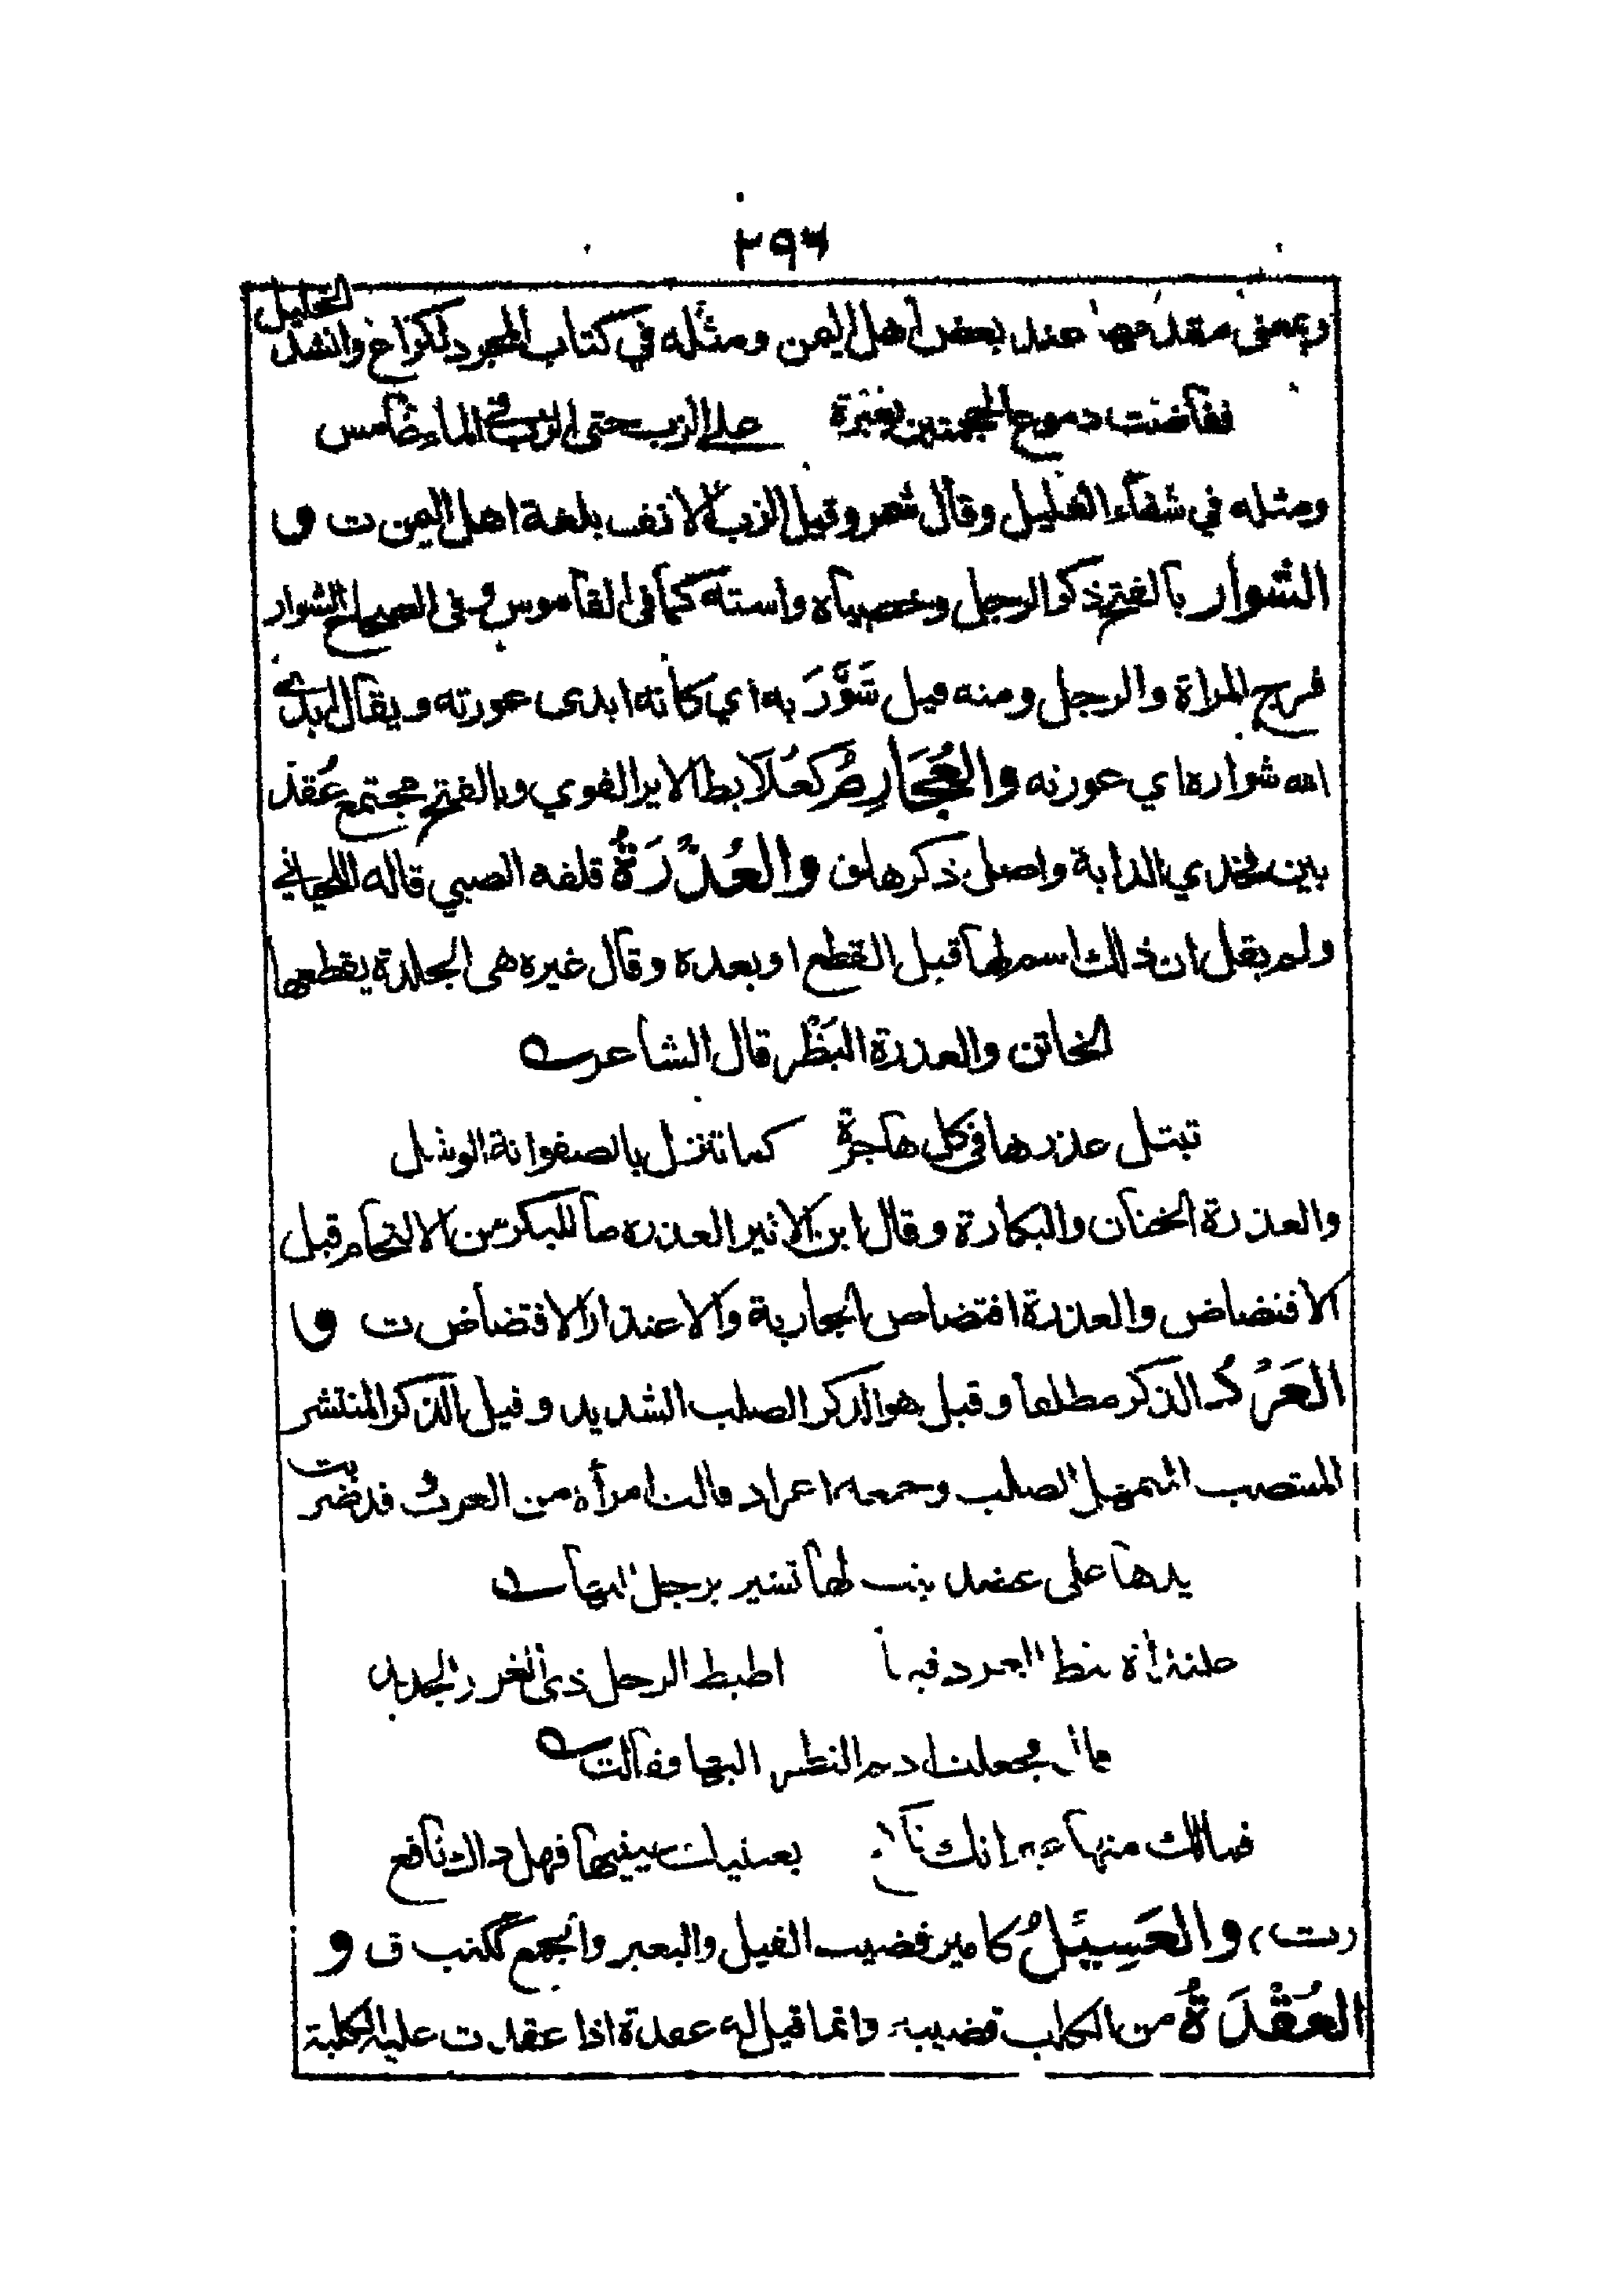 ٢٩٦
الخليل
وبمعنى مقدمها عند بعض اهل اليمن ومثله في كتاب المجرد لكراع وانشد
ففاضت دموع الجحمتين بعبرة على الزب حتى الزب في الماء غامس
ومثله في شفاء الغليل وقال شمر وقيل الزب الانف بلغة اهل اليمن ت و
الشوار بالفتح ذكر الرجل وخصياه واسته كما في القاموس وفي الصحاح الشوار
فرج المراة والرجل ومنه قيل شَوَّرَ به اي كانه ابدى عورته ويقال ابدى
الله شواره اي عورته والعُجَارِمُ كعُلابط الاير القوي وبالفتح مجتمع عُقد
بين فخذي الدابة واصل ذكرها ق والعُذْرَةُ قلفه الصبي قاله اللحياني
ولم يقل ان ذلك اسم لها قبل القطع او بعده وقال غيره هى الجلدة يقطعها
الخاتن والعذرة البَظْر قال الشاعر
تبتل عذرها في كل هاجرة كما تنزل بالصفوانة الوشل
والعذرة الختان والبكارة وقال ابن الاثير العذره ما للبكر من الالتحام قبل
الافتضاض والعذرة افتضاض الجارية والاعتذار الافتضاض ت و
العَرْدُ الذكر مطلقا وقيل هو الذكر الصلب الشديد وقيل الذكر المنتشر
المنتصب المتمهل الصلب وجمعه اعراد قالت امرأة من العرب وقد ضربت
يدها على عضد بنت لها تشير برجل اليها
علنداة يئط العرد فيها اطيط الرحل ذى الغرز الجديد
قال فجعلت اديم النظر اليها فقالت
فمالك منها غير انك ناكح بعينيك عينيها فهل ذاك نافع
(ت) والعَسِيَلُ كامير قضيب الفيل والبعير والجمع ككتب ق و
العُقْدَةُ من الكلب قضيبه وانما قيل له عقدة اذا عقدت عليه الكلبة